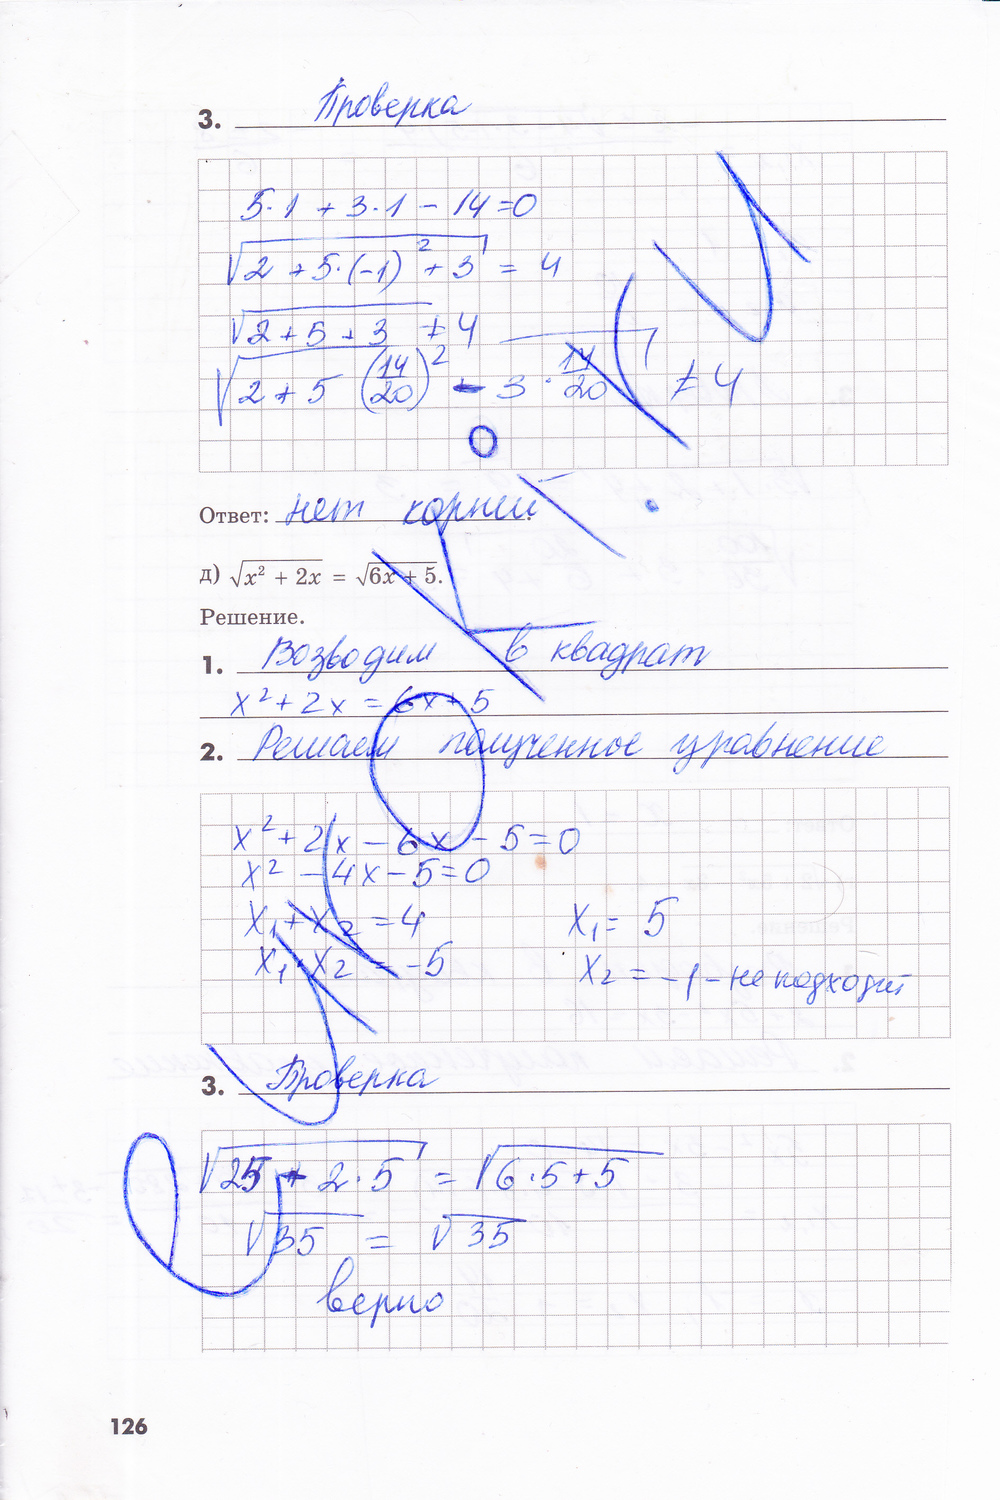 3. Проверка
5·1 + 3·1 - 14 = 0
√2 + 5·(-1)² + 3 = 4
√2 + 5 + 3 ≠ 4
√2 + 5 (14/20)² - 3 · 14/20 ≠ 4
Ответ: нет корней.
д) √x² + 2x = √6x + 5.
Решение.
1. Возводим в квадрат
x² + 2x = 6x + 5
2. Решаем полученное уравнение
x² + 2x - 6x - 5 = 0
x² - 4x - 5 = 0
x₁ + x₂ = 4 x₁ = 5
x₁ · x₂ = -5 x₂ = -1 - не подходит
3. Проверка
√25 + 2·5 = √6·5 + 5
√35 = √35
верно
126